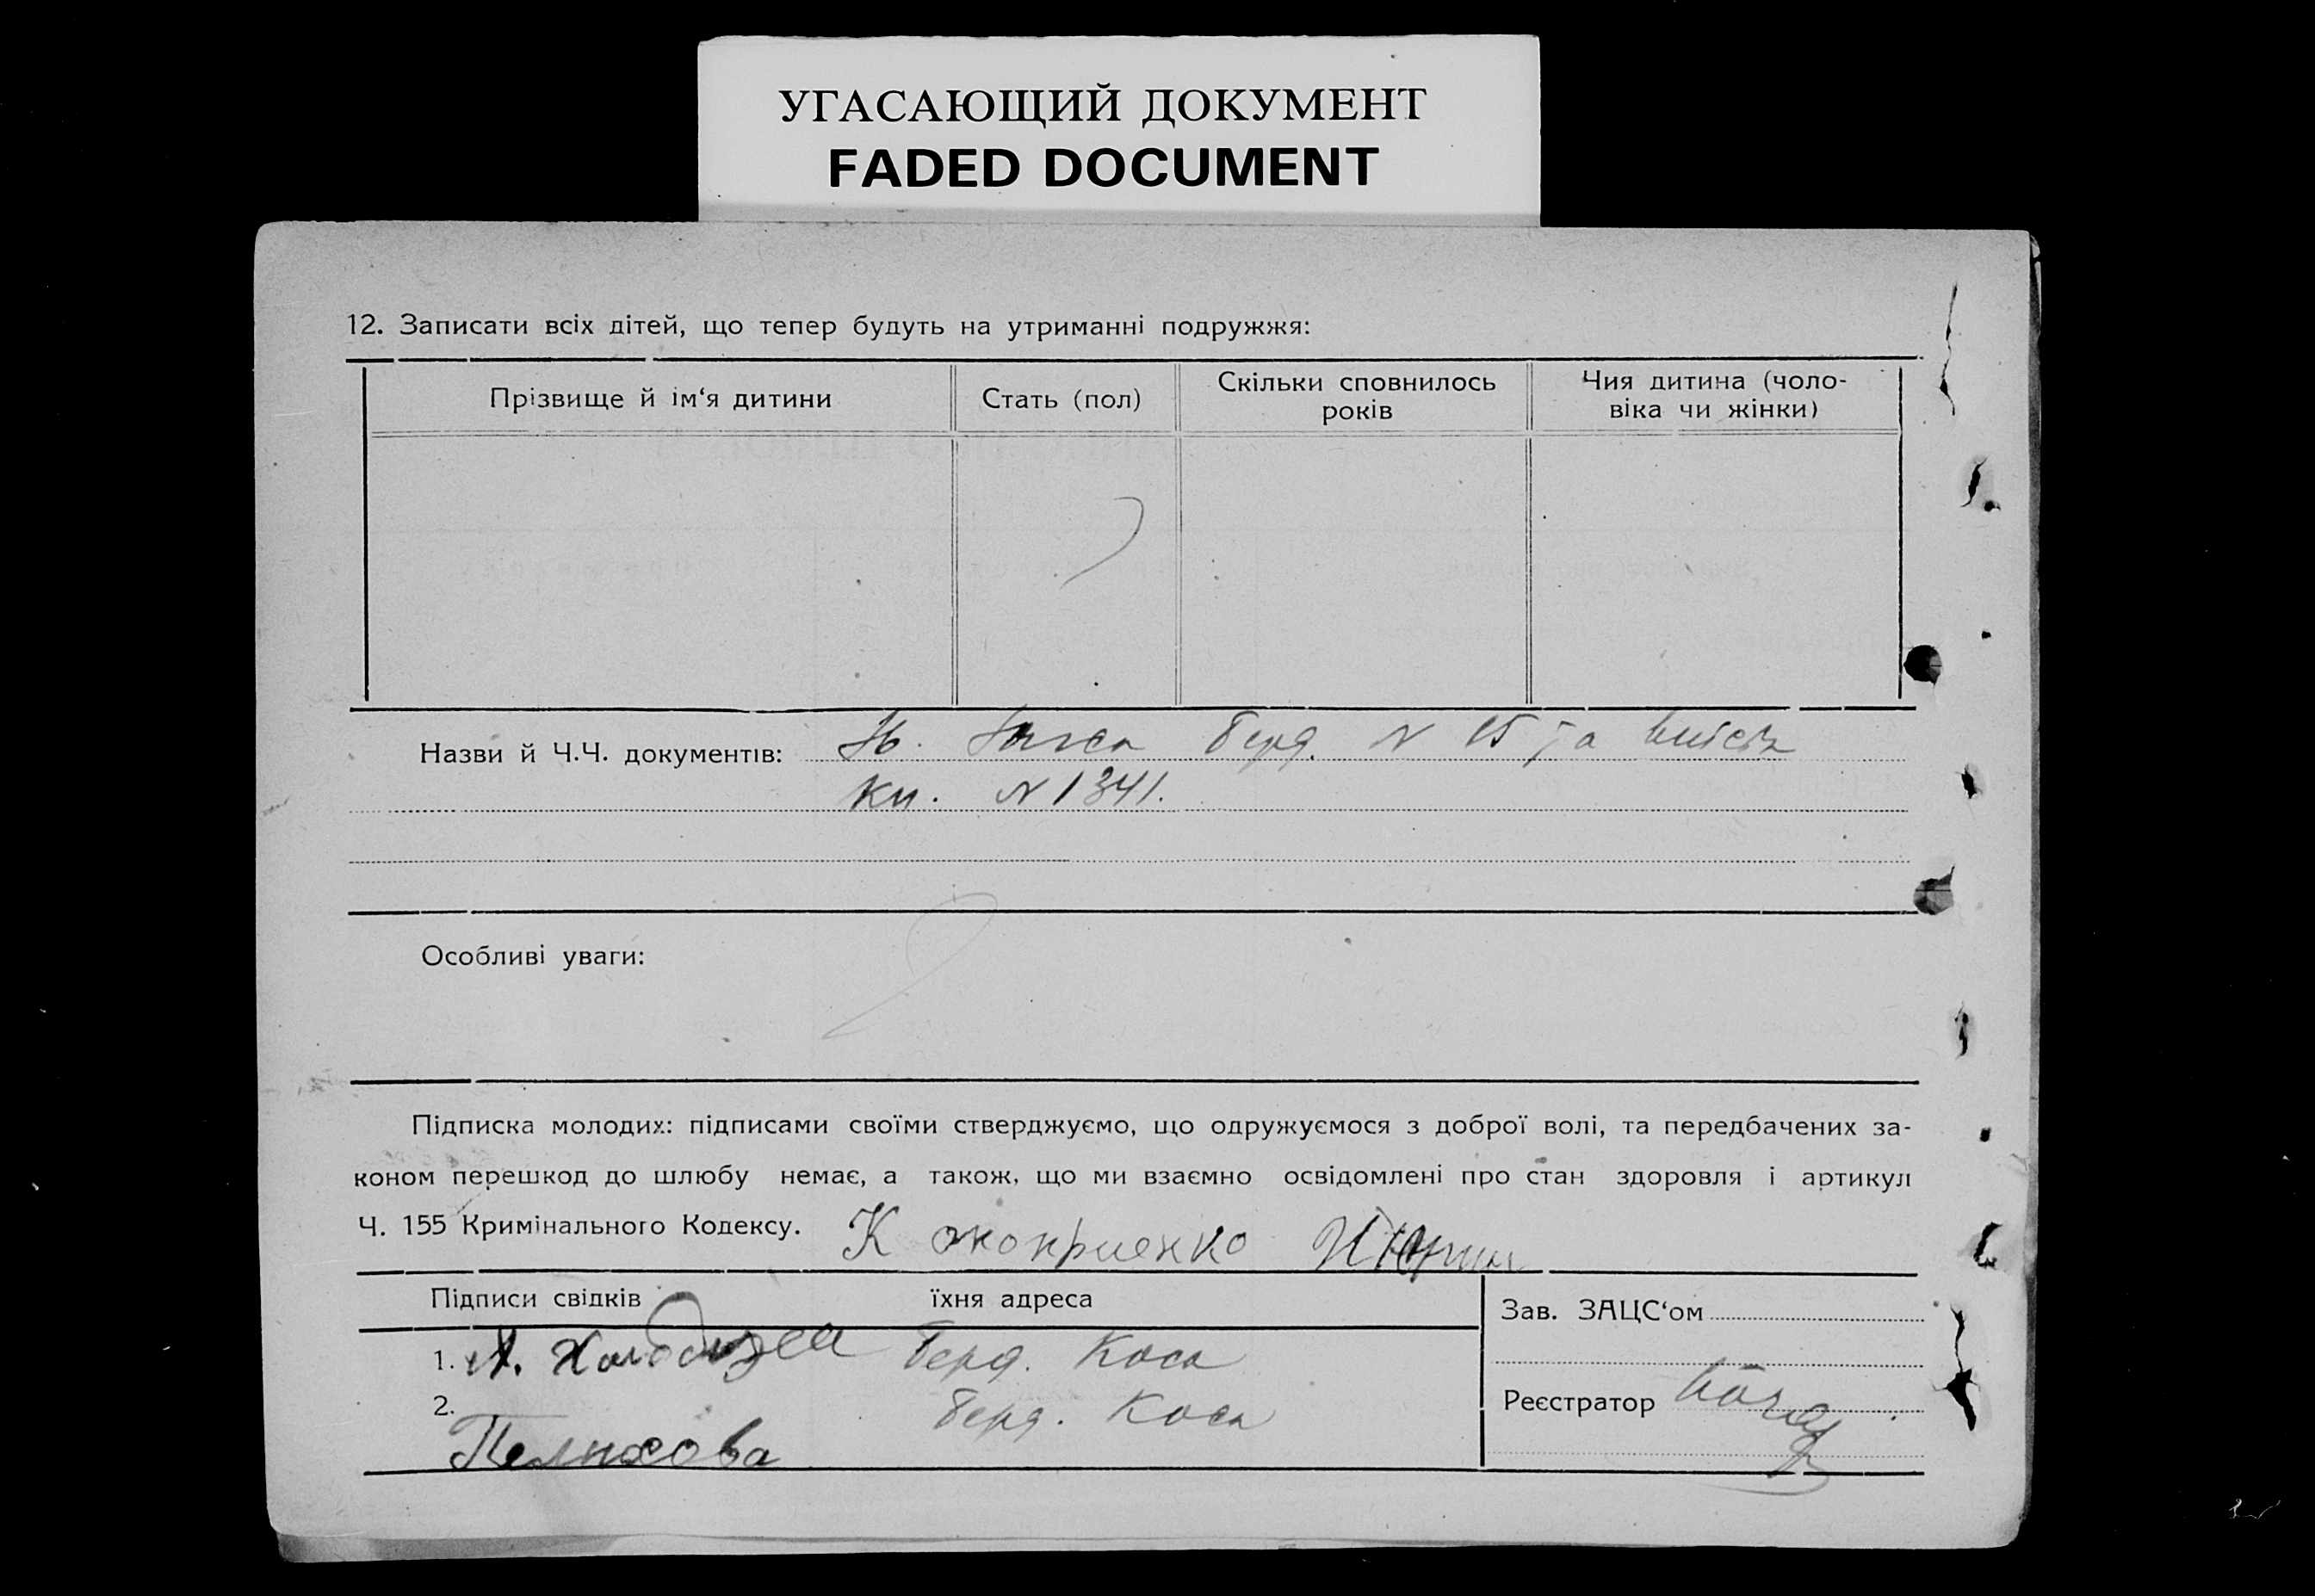 УГАСАЮЩИЙ ДОКУМЕНТ
FADED DOCUMENT
12. Записати всіх дітей, що тепер будуть на утриманні подружжя:
Прізвище й ім‘я дитини
Стать (пол)
Скільки сповнилось
років
Чия дитина (чоло-
віка чи жінки)
Назви й Ч.Ч. документів: Берд. N 15 та
Кн. N 1341.
Особливі уваги:
Підписка молодих: підписами своїми стверджуємо, що одружуємося з доброї волі, та передбачених за-
коном перешкод до шлюбу немає, а також, що ми взаємно освідомлені про стан здоровля і артикул
Ч. 155 Кримінального Кодексу.
Підписи свідків
їхня адреса
Зав. ЗАЦС‘ом
1. А. Берд. Коса
2. Берд. Коса
Реєстратор